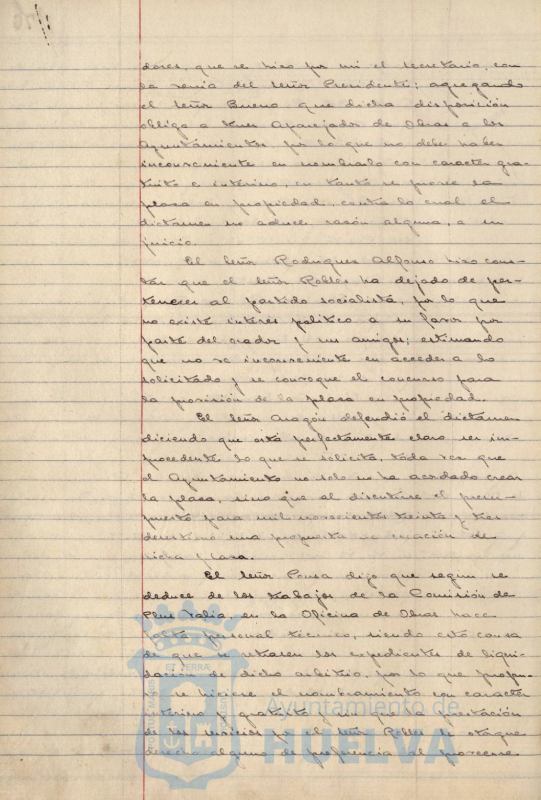 dores, que se hizo por mi el secretario, con
la venia del Señor Presidente; agregando
el Señor Bueno que dicha disposición
obliga a tener Aparejador de Obras a los
Ayuntamientos por lo que no debe haber
inconveniente en nombrarlo con caracter gra-
tuito e interino, en tanto se provee la
plaza en propiedad, contra lo cual el
dictamen no aduce razón alguna, a su
juicio.
El Señor Rodriguez Alfonso hizo cons-
tar que el Señor Robles ha dejado de per-
tenecer al partido socialista, por lo que
no existe interés politico a su favor por
parte del orador y sus amigos; estimando
que no ve inconveniente en acceder a lo
solicitado y se convoque el concurso para
la provisión de la plaza en propiedad.
El Señor Aragón defendió el dictamen
diciendo que está perfectamente claro ser im-
procedente lo que se solicita, toda vez que
el Ayuntamiento no solo no ha acordado crear
la plaza, sino que al discutirse el presu-
puesto para mil novecientos treinta y tres
desestimó una propuesta de creación de
dicha plaza.
El Señor Ponsa dijo que segun se
deduce de los trabajos de la Comisión de
Plus Valia, en la Oficina de Obras hace
falta personal técnico, siendo esta causa
de que se retrasen los expedientes de liqui-
dación de dicho arbitrio, por lo que
se hiciese el nombramiento con caracter
interino y gratuito y sin que la prestación
de los servicios por el Señor Robles le otorgue
derecho alguno de preferencia al proveerse
Ayuntamiento de
HUELVA